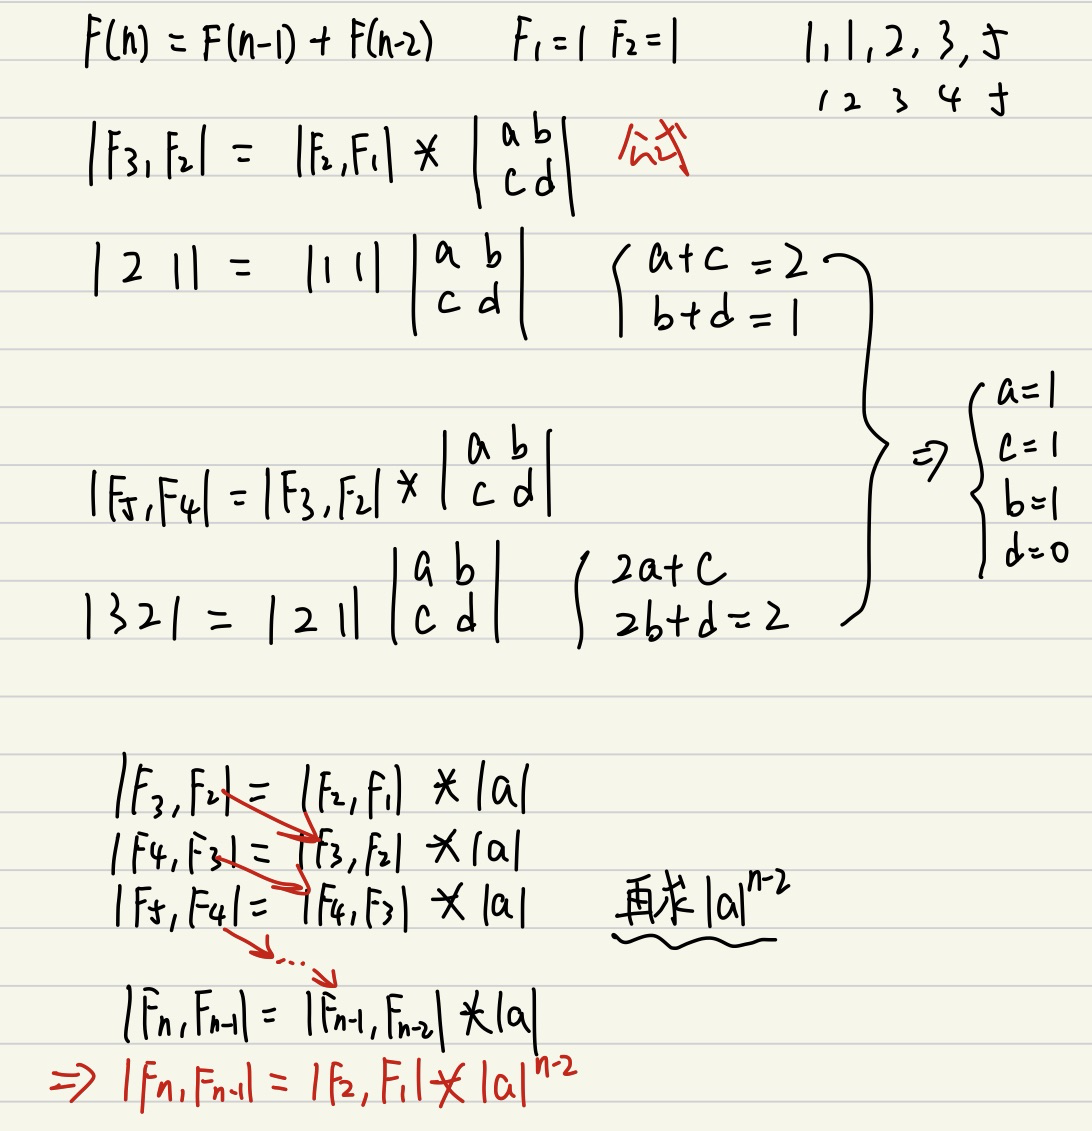 F(n) = F(n-1) + F(n-2) F₁=1 F₂=1 1,1,2,3,5
1 2 3 4 5
|F₃,F₂| = |F₂,F₁| * |a b| 公式
|c d|
|2 1| = |1 1| |a b| { a+c = 2
|c d| b+d = 1
{ a=1
|F₅,F₄| = |F₃,F₂| * |a b| ⇒ c=1
|c d| b=1
d=0
|3 2| = |2 1| |a b| { 2a+c
|c d| 2b+d = 2
|F₃,F₂| = |F₂,F₁| * |a|
|F₄,F₃| = |F₃,F₂| * |a|
|F₅,F₄| = |F₄,F₃| * |a| 再求|a|ⁿ⁻²
...
|Fₙ,Fₙ₋₁| = |Fₙ₋₁,Fₙ₋₂| * |a|
⇒ |Fₙ,Fₙ₋₁| = |F₂,F₁| * |a|ⁿ⁻²